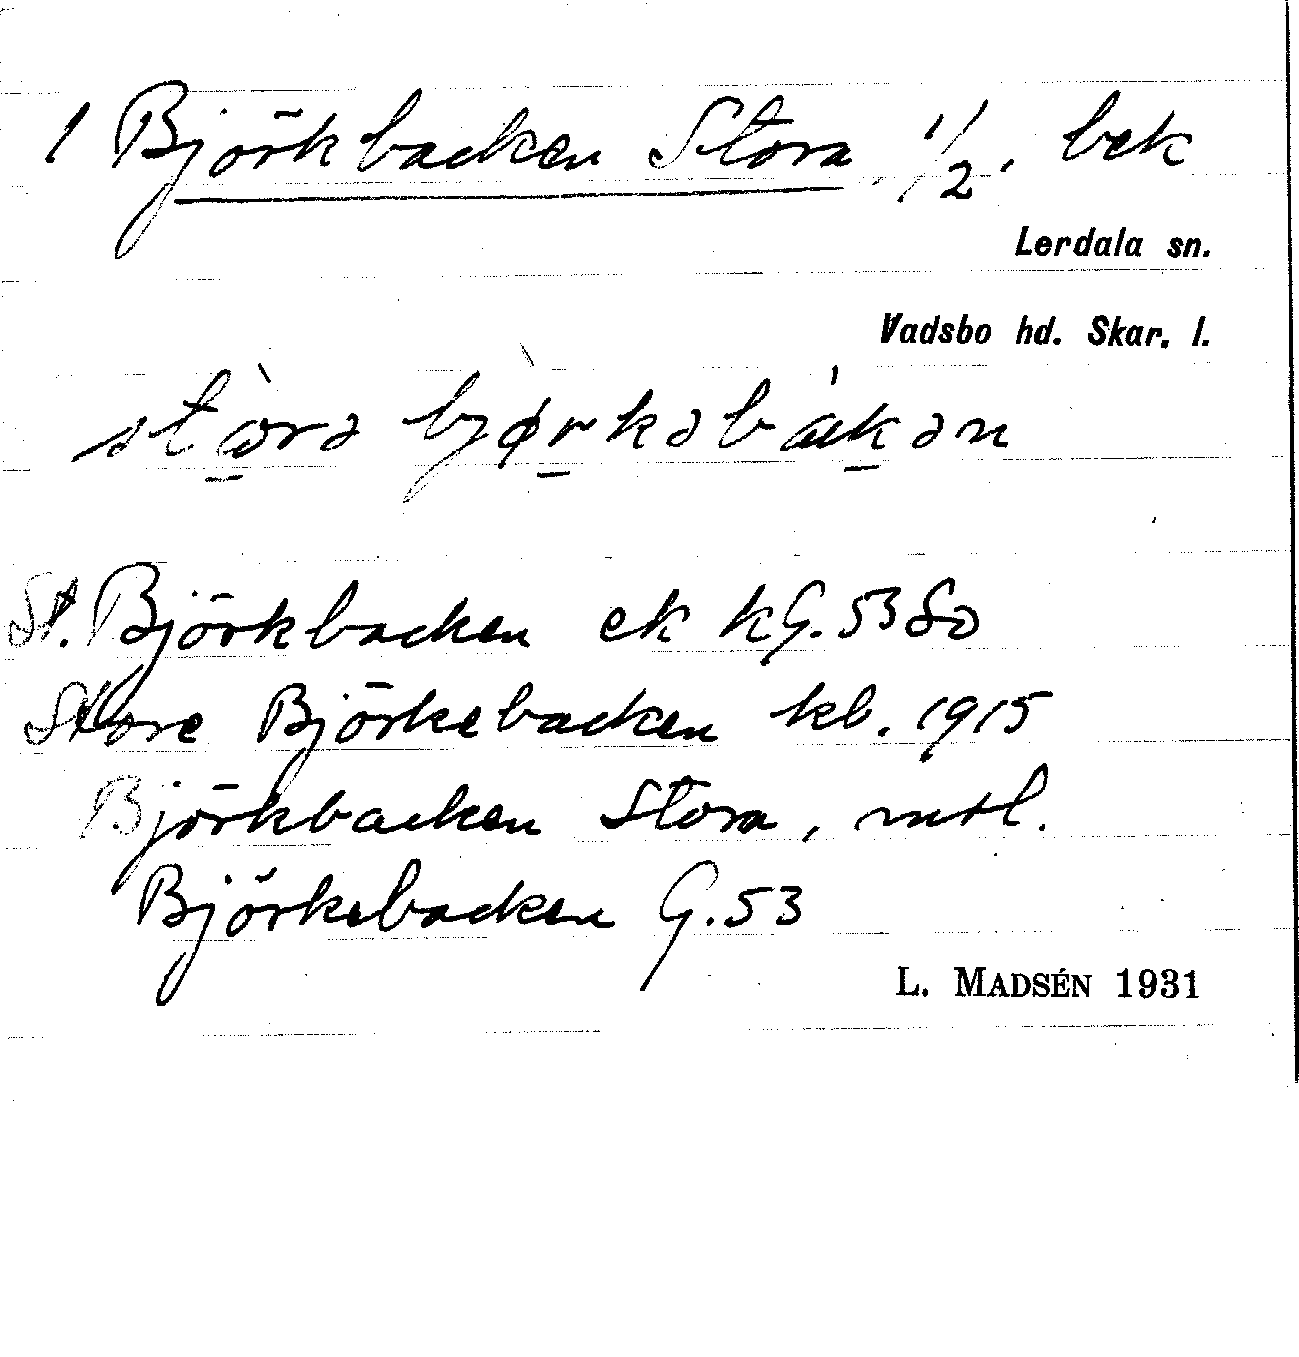 1 Björkbacken Stora 1/2. bek
Lerdala sn.
Vadsbo hd. Skar. l.
stòra bjørkəbákən
St. Björkbacken ek kG. 53 So
Store Björkebacken kb. 1915
Björkbacken Stora, mtl.
Björkebacken G. 53
L. MADSÉN 1931